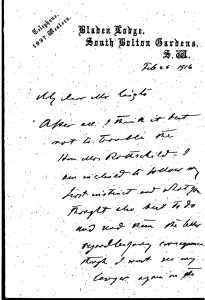 Telephone,
1667 Western.
Bladen Lodge,
South Bolton Gardens,
S.W.
Feb 26 1916
My dear Mr
After all I think it best
not to trouble the
Hon Mrs Rothschild. I
am inclined to follow my
first instinct and what you
thought also best to do
and send them the letter
regardless of any consequences
though I must see my
lawyer again on the